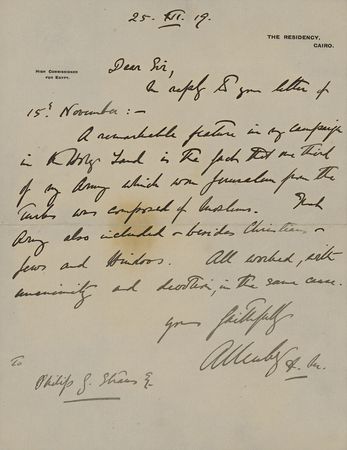 25. XII. 19.
THE RESIDENCY,
CAIRO.
HIGH COMMISSIONER
FOR EGYPT.
Dear Sir,
In reply to your letter of
15th November: –
A remarkable feature in my campaign
in the Holy Land is the fact that one third
of my Army which won Jerusalem from the
Turks was composed of Moslems. That
Army also included – besides Christians –
Jews and Hindoos. All worked, with
unanimity and devotion, in the same cause.
Yours faithfully
Allenby
To
Philip J.